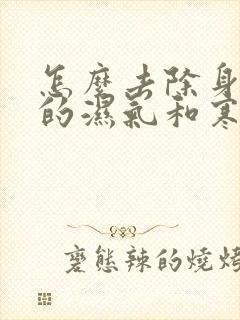 怎麼去除身
的濕氣和寒
變態辣的燒烤